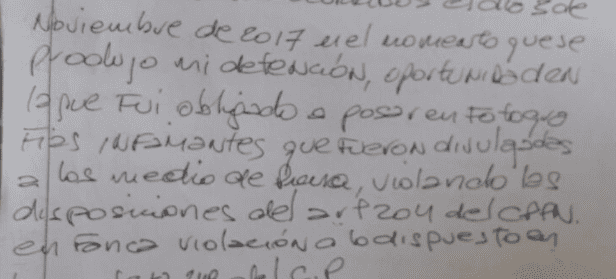 el día 3 de
Noviembre de 2017 en el momento que se
produjo mi detención, oportunidad en
la que fui obligado a posar en fotogra
fías INFAMANTES que fueron divulgadas
a los medio de Prensa, violando las
disposiciones del art 204 del CPPN.
en franca violación a lo dispuesto en
del C.P